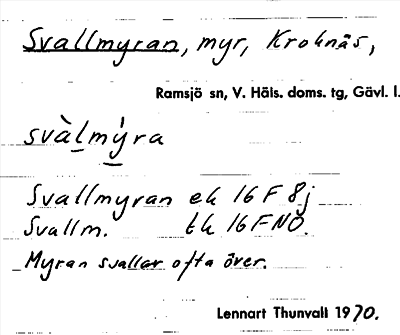 Svallmyran, myr, Kroknäs,
Ramsjö sn, V. Häls. doms. tg, Gävl. l.
svàlmýra
Svallmyran ek 16 F 8j
Svallm. tk 16 F NO.
Myran svallar ofta över.
Lennart Thunvall 1970.